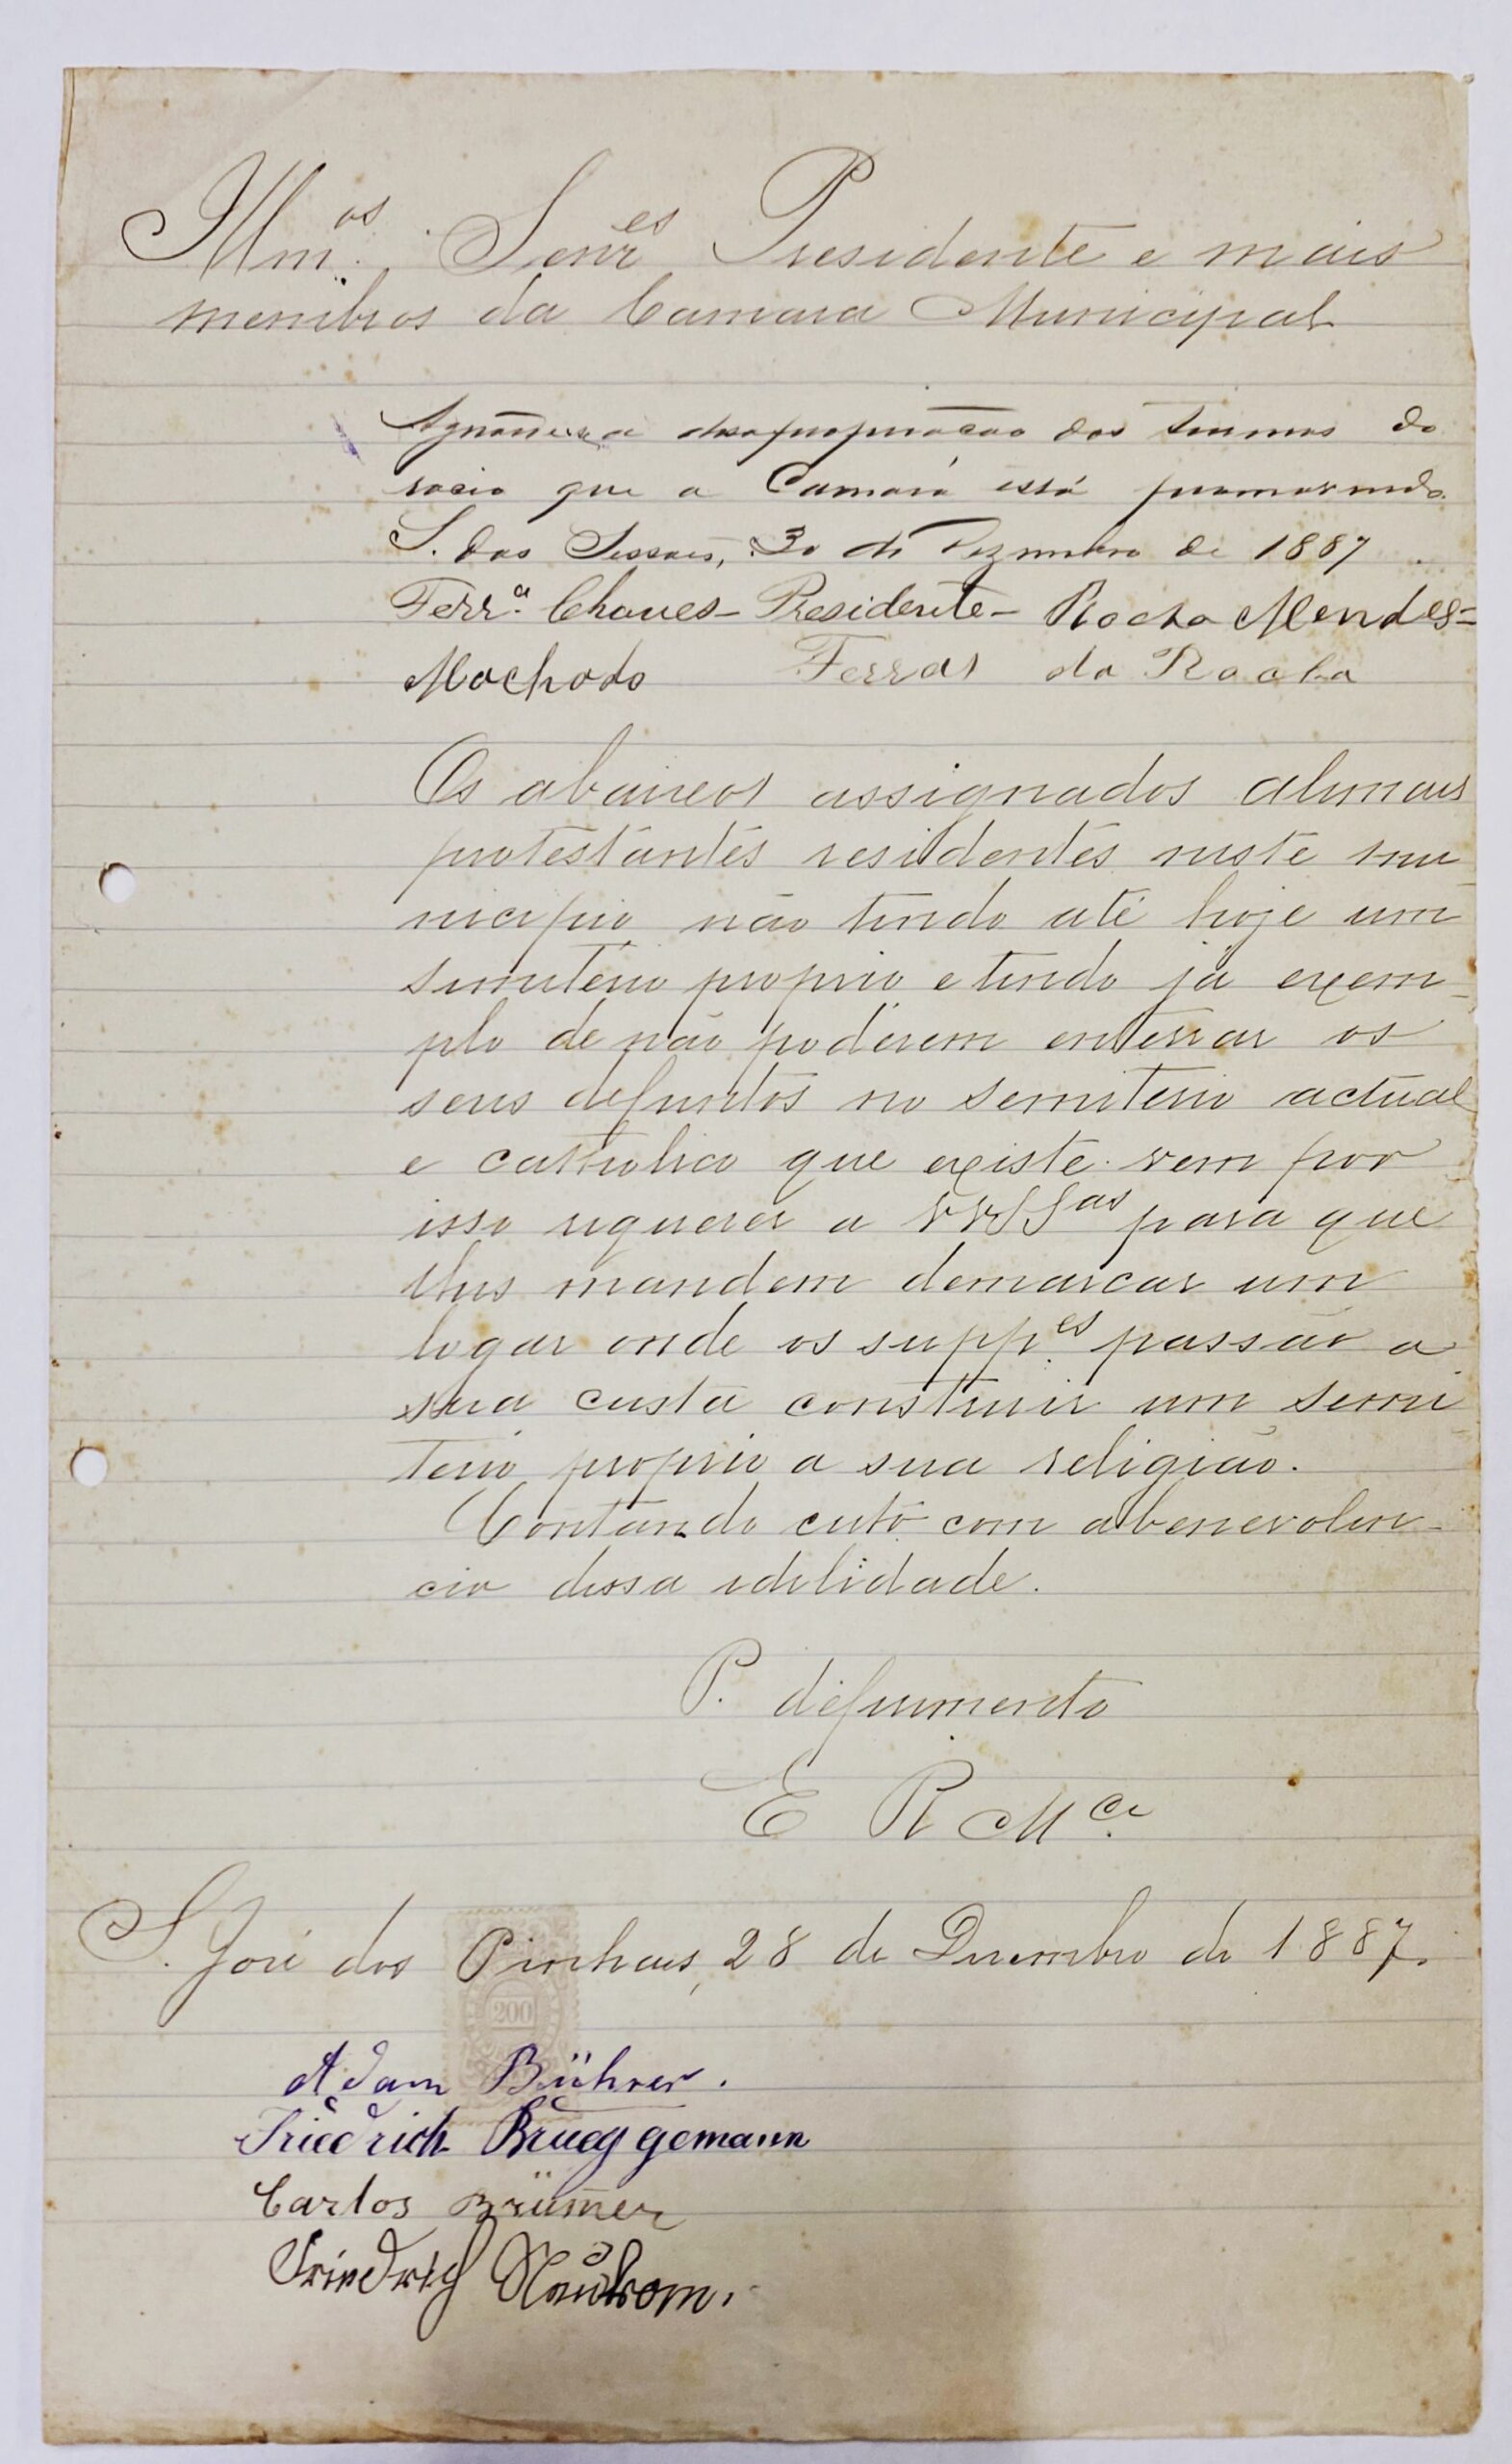 Illm.os Senr.es Presidente e mais
membros da Camara Municipal
desapropriação dos terrenos do
rocio que a Camara está promovendo.
S. das Sessões, 30 de Dezembro de 1887
Ferr.a Chaves - Presidente - Rocha Mendes =
Machado Ferras da Rocha
Os abaixos assignados alemais
protestantes residentes neste mu
nicipio não tendo até hoje um
simiterio proprio e tendo já exem
plo de não poderem enterrar os
seus defuntos no semiterio actual
e catholico que existe vem por
isso requerer a VVSSas para que
lhes mandem demarcar um
logar onde os supp.es possão a
sua custa construir um semi
terio proprio a sua religião.
Contando com a benevolen-
cia dessa idelidade.
P. diferimento
E R Mce.
S. José dos Pinhaes, 28 de Dezembro de 1887.
200
Adam Bührer.
Friedrich Brueggemann
Carlos Brümer
Friedrich